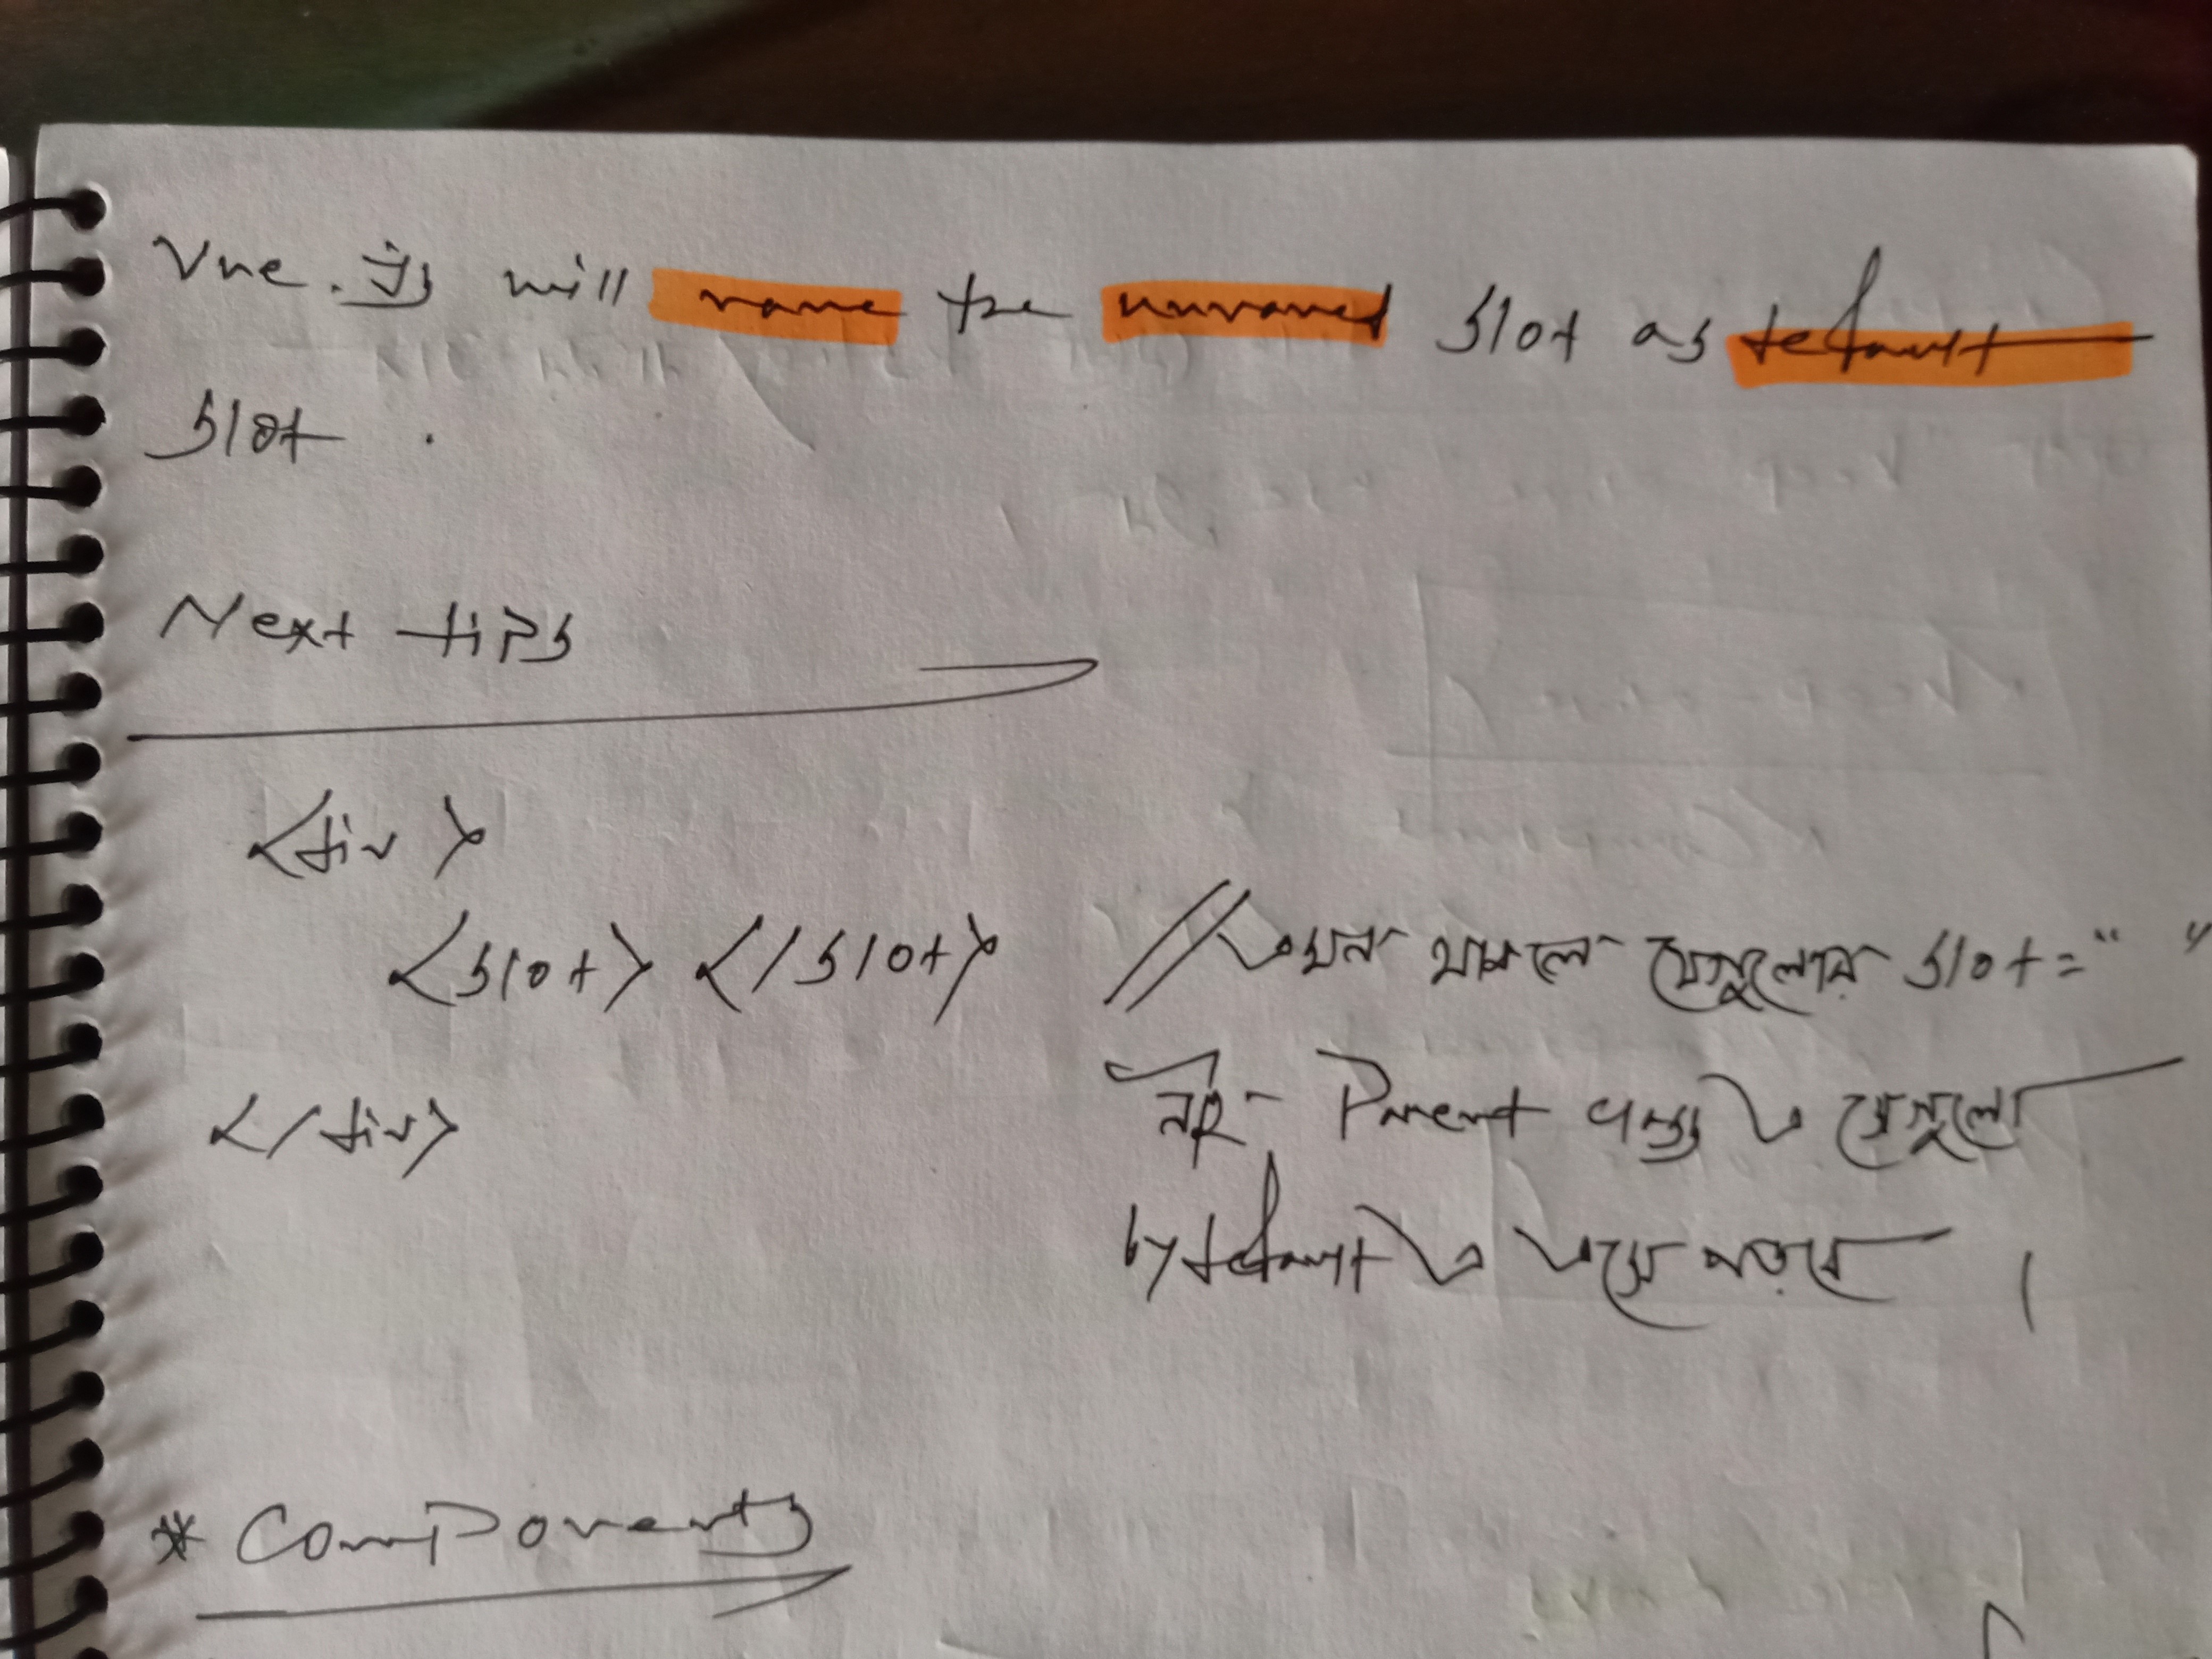 Vue.js will name the unnamed slot as default
slot .
Next tips
<div>
<slot> </slot> // এমন থাকলে যেগুলোর slot=" "
নাই Parent এ সেগুলো
by default এ এসে পড়বে ।
</div>
* Components